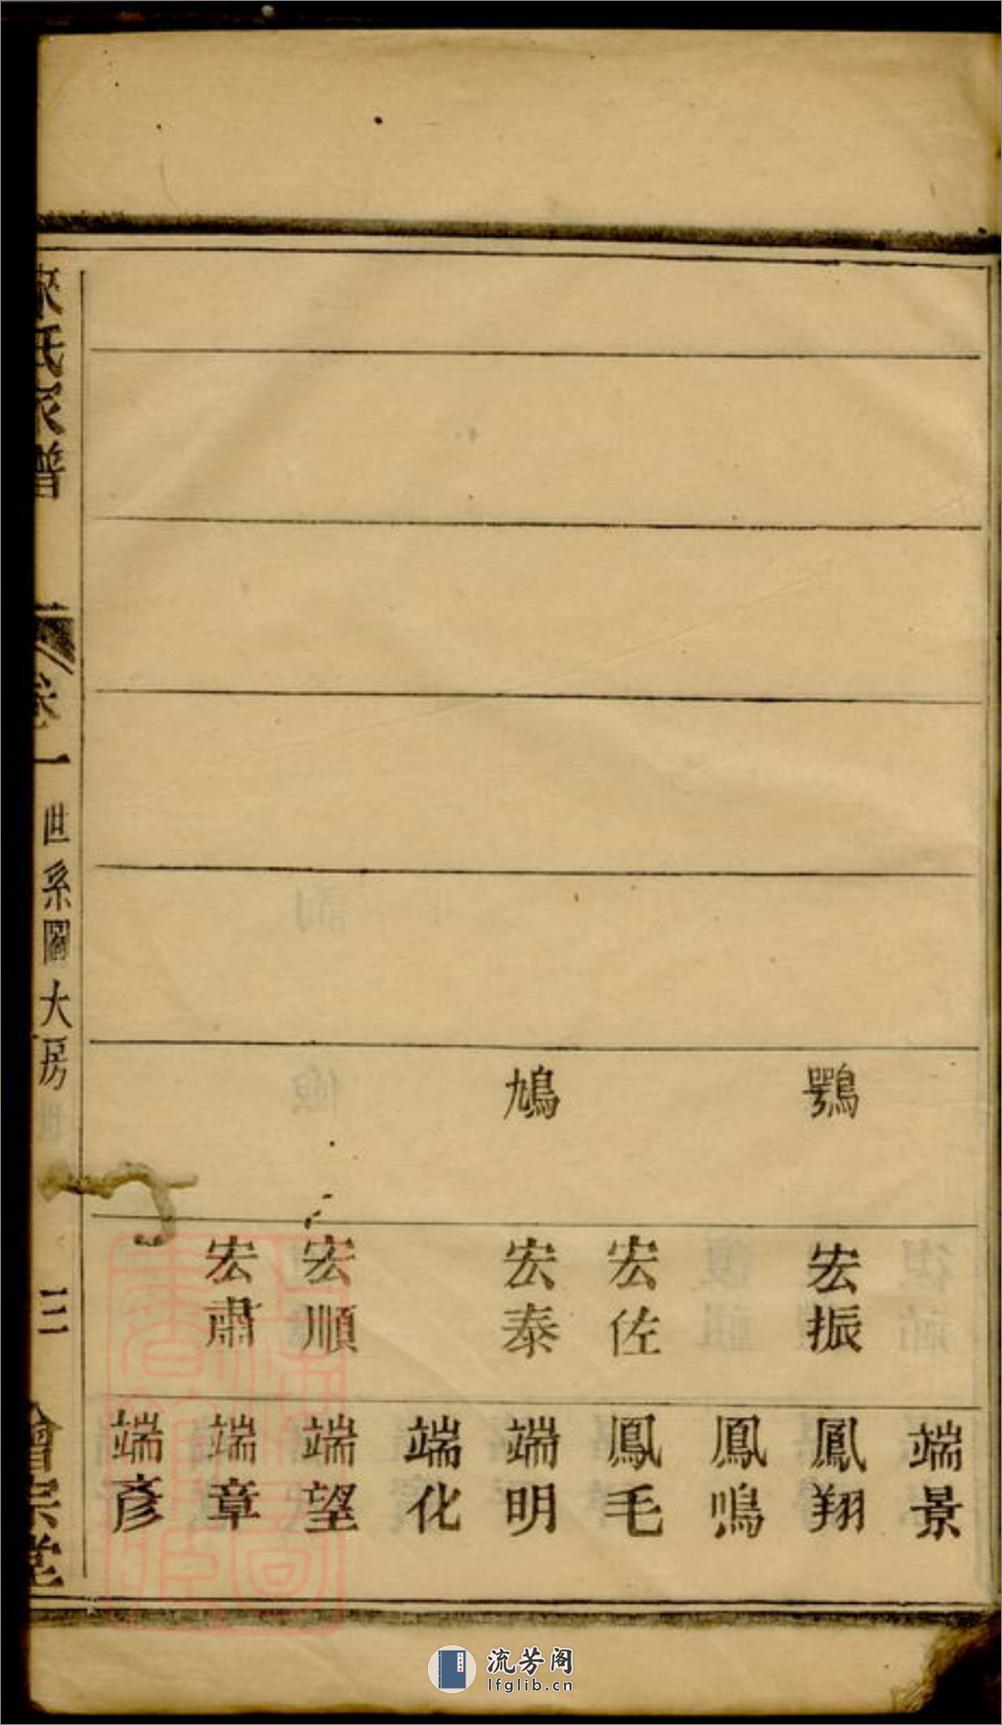 端景
鶚
宏振
鳳翔
鳳鳴
宏佐
鳳毛
鳩
宏泰
端明
端化
宏順
端望
宏肅
端章
端彥
氏家譜
卷一
世系圖大房
三
會宗堂
流芳阁
lfglib.cn